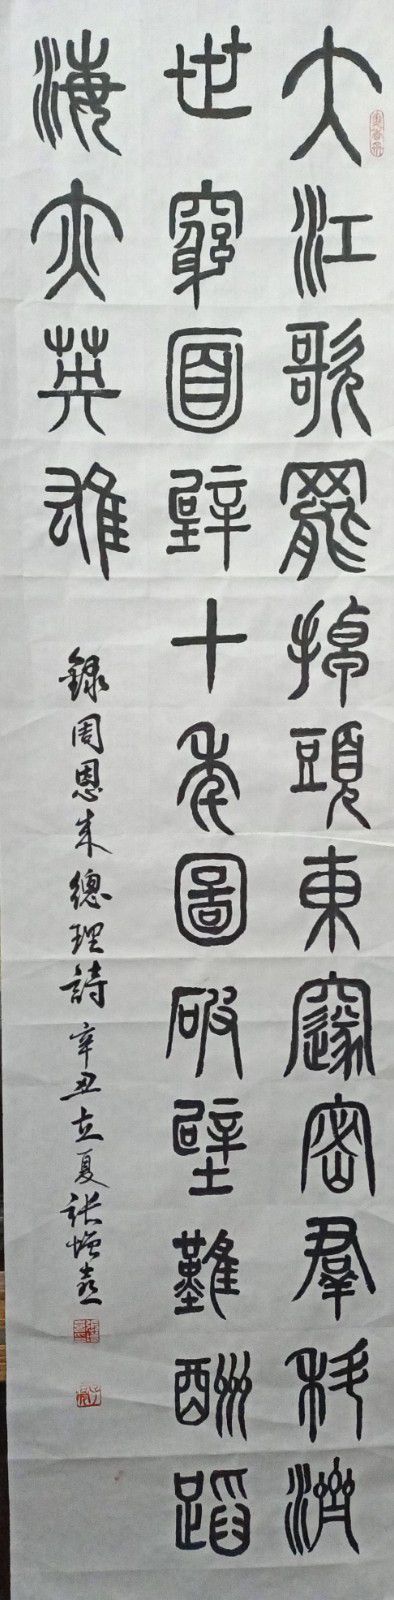 大江歌罷掉頭東邃密羣科濟
世窮面壁十年圖破壁難酬蹈
海亦英雄
録周恩来總理詩 辛丑立夏 张增